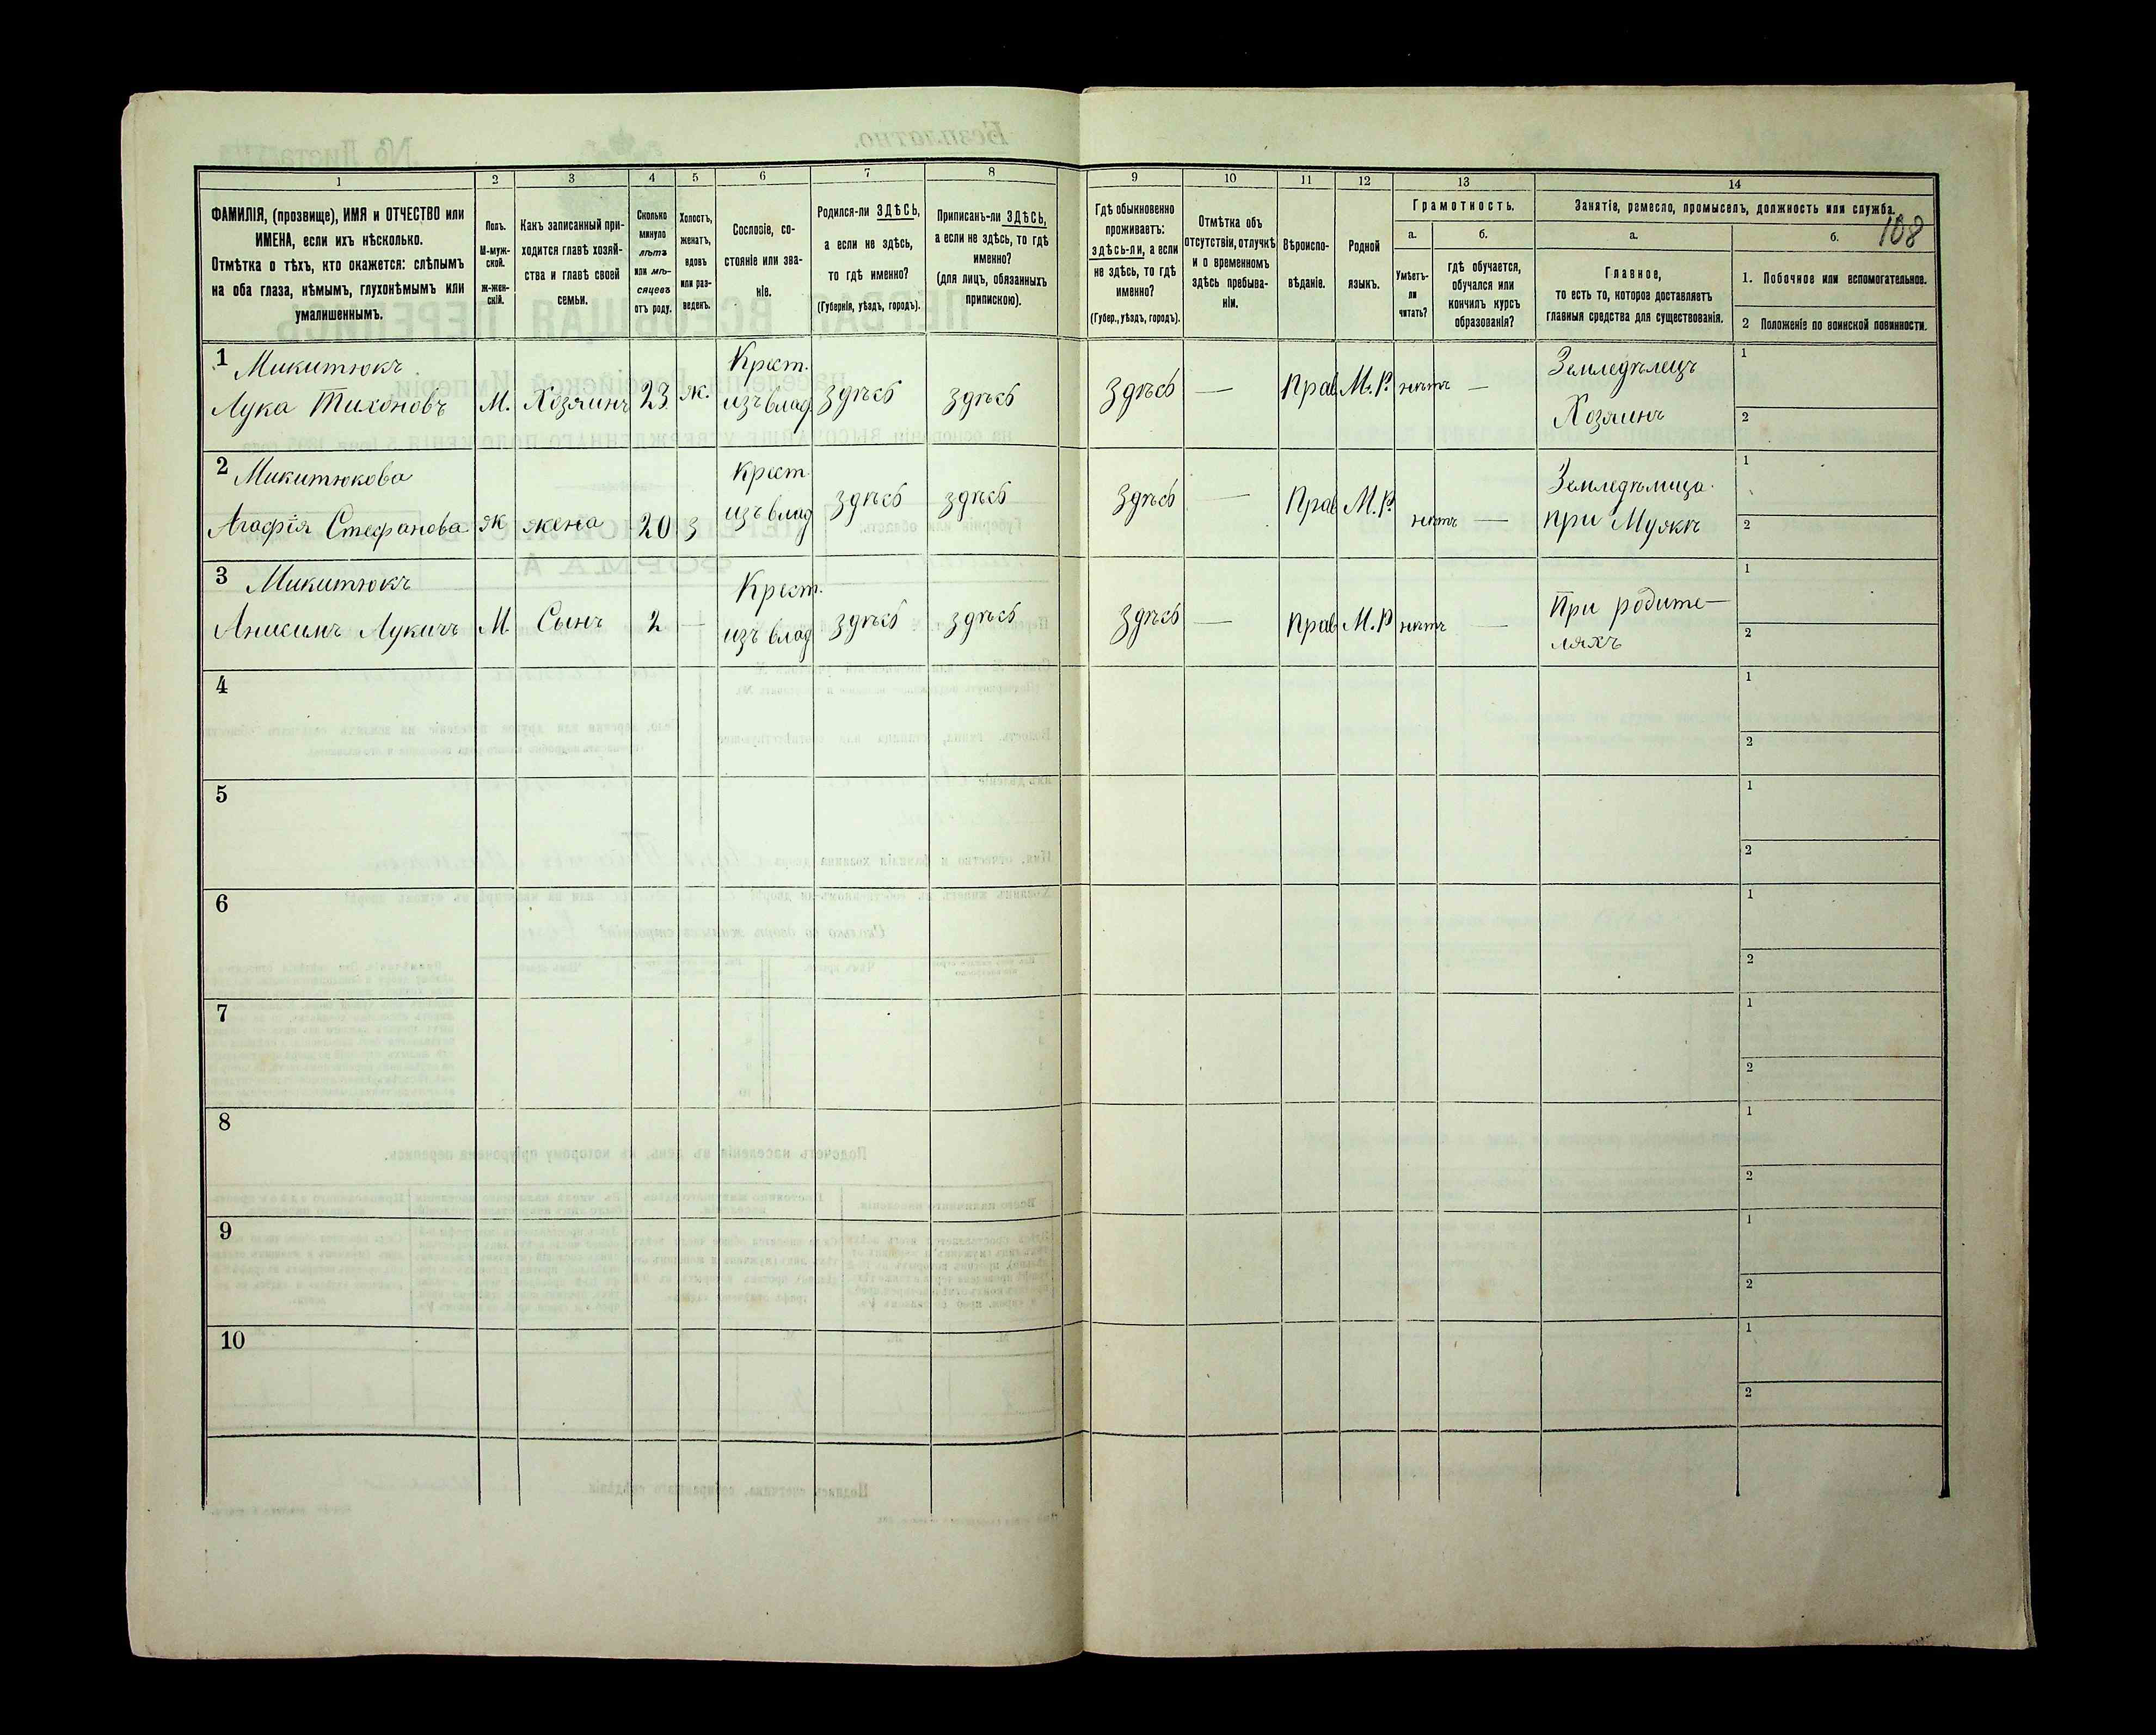 1 2 3 4 5 6 7 8 9 10 11 12 13 14
ФАМИЛІЯ, (прозвище), ИМЯ и ОТЧЕСТВО или
ИМЕНА, если ихъ нѣсколько.
Отмѣтка о тѣхъ, кто окажется: слѣпымъ
на оба глаза, нѣмымъ, глухонѣмымъ или
умалишеннымъ.
Полъ.
М-муж-
ской.
ж-жен-
скій.
Какъ записанный при-
ходится главѣ хозяй-
ства и главѣ своей
семьи.
Сколько
минуло
лѣтъ
или мѣ-
сяцевъ
отъ роду.
Холостъ,
женатъ,
вдовъ
или раз-
веденъ.
Сословіе, со-
стояніе или зва-
ніе.
Родился-ли ЗДѢСЬ,
а если не здѣсь,
то гдѣ именно?
(Губернія, уѣздъ, городъ).
Приписанъ-ли ЗДѢСЬ,
а если не здѣсь, то гдѣ
именно?
(для лицъ, обязанныхъ
припискою).
Гдѣ обыкновенно
проживаетъ:
здѣсь-ли, а если
не здѣсь, то гдѣ
именно?
(Губер., уѣздъ, городъ).
Отмѣтка объ
отсутствіи, отлучкѣ
и о временномъ
здѣсь пребыва-
ніи.
Вѣроиспо-
вѣданіе.
Родной
языкъ.
Грамотность.
а.
Умѣетъ-
ли
читать?
б.
гдѣ обучается,
обучался или
кончилъ курсъ
образованія?
Занятіе, ремесло, промыселъ, должность или служба.
а.
Главное,
то есть то, которое доставляетъ
главныя средства для существованія.
б.
108
1. Побочное или вспомогательное.
2 Положеніе по воинской повинности.
1 Микитюкъ Крест. Земледѣлецъ 1
Лука Тихоновъ М. Хозяинъ 23 ж. изъ влад здѣсь здѣсь здѣсь — Прав М. Р. нѣтъ — Хозяинъ 2
2 Микитюкова Крест Земледѣлица 1
Агафія Стефанова ж жена 20 з изъ влад здѣсь здѣсь здѣсь — Прав М. Р. нѣтъ — при Мужѣ 2
3 Микитюкъ Крест. При родите- 1
Анисимъ Лукичъ М. Сынъ 2 — изъ влад здѣсь здѣсь здѣсь — Прав М. Р нѣтъ — ляхъ 2
4 1
2
5 1
2
6 1
2
7 1
2
8 1
2
9 1
2
10 1
2